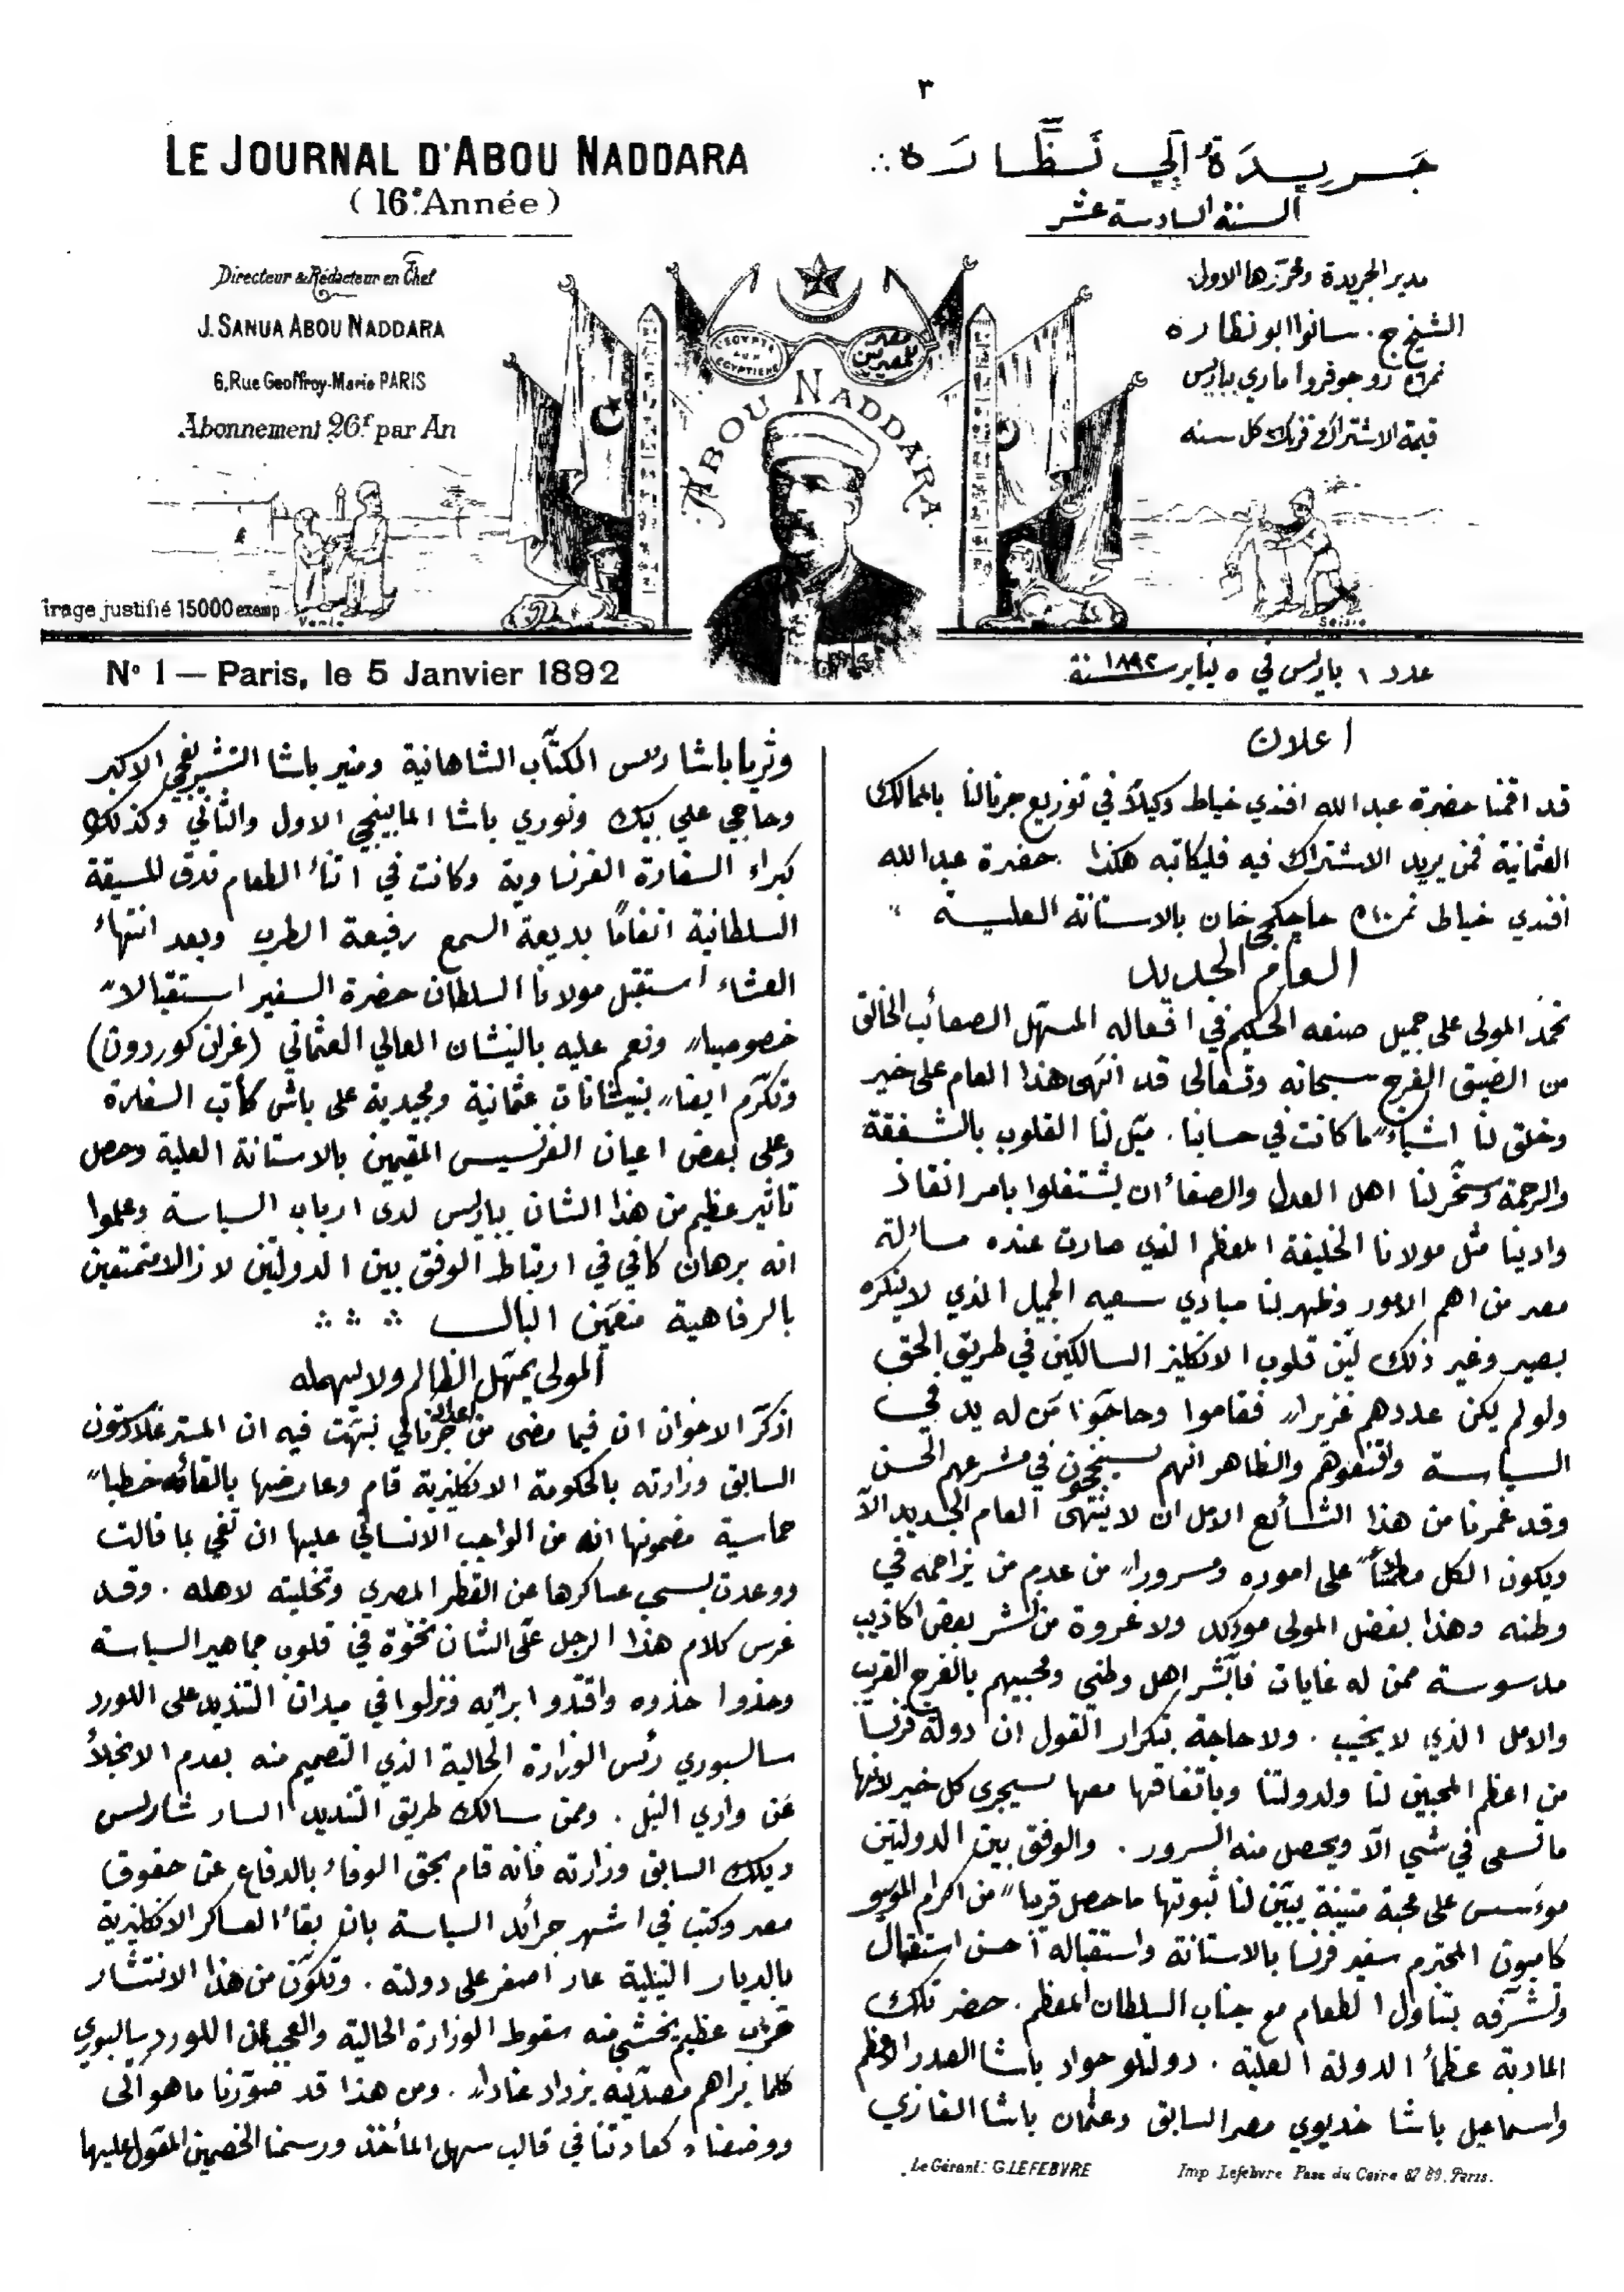 ٣
LE JOURNAL D'ABOU NADDARA
(16e Année)
جَريدَة أَبي نَظَّارَة
السنة السادسة عشر
Directeur & Rédacteur en Chef
J. SANUA ABOU NADDARA
6, Rue Geoffroy-Marie PARIS
Abonnement 26f par An
مدير الجريدة ومحررها الاول
الشيخ ج. سانوا ابو نظاره
نمرة ٦ رو جوفروا ماري بباريس
قيمة الاشتراك فرنك كل سنه
L'EGYPTE AUX EGYPTIENS
مصر للمصريين
ABOU NADDARA
irage justifié 15000 exemp
No 1 — Paris, le 5 Janvier 1892
عدد ١ باريس في ٥ يناير سنة ١٨٩٢
اعلان
قد اقمنا حضرة عبد الله افندي خياط وكيلاً في توزيع جرنالنا بالممالك
العثمانية فمن يريد الاشتراك فيه فليكاتبه هكذا . حضرة عبد الله
افندي خياط نمرة خان بالاستانة العلية
العام الجديد
نحمد المولى على جميل صنعه الحكيم في افعاله المسهل الصعائب الخالق
من الضيق الفرج سبحانه وتعالى قد انتهى هذا العام على خير
وخلق لنا اشياء ما كانت في حسابنا . ميّل لنا القلوب بالشفقة
والرحمة وسخّر لنا اهل العدل والصفاء ان يشتغلوا بامر انقاذ
وادينا مثل مولانا الخليفة المعظم الذي صارت عنده مسألة
مصر من اهم الامور وظهر لنا مبادي سعيه الجميل الذي لا ينكره
بصير وغير ذلك ليّن قلوب الانكليز السالكين في طريق الحق
ولو لم يكن عددهم غزيرا فقاموا وحاججوا مَن له يد في
السياسة والظاهر انهم سينجحون في مشرعهم الحسن
وقد غمرنا من هذا الشائع الامل ان لا ينتهى العام الجديد الّا
ويكون الكل مطمئناً على اموره ومسرورا من عدم من يزاحمه في
وطنه وهذا بفضل المولى موكد ولا غروة من نشر بعض اكاذيب
مدسوسة ممن له غايات فأبشر اهل وطني ومحبيهم بالفرج القريب
والامل الذي لا يخيب . ولا حاجة بتكرار القول ان دولة فرنسا
من اعظم المحبين لنا ولدولتنا وباتفاقها معها سيجرى كل خير لانها
ما تسعى في شي الّا ويحصل منه السرور . والوفق بين الدولتين
موءسس على محبة متينة يبيّن لنا ثبوتها ما حصل قريبا من اكرام الموسيو
كامبون المحترم سفير فرنسا بالاستانة واستقباله أحسن استقبال
وتشرّفه بتناول الطعام مع جناب السلطان المعظم . حضر تلك
المادبة عظماء الدولة العلية . دولتلو جواد باشا الصدر الاعظم
واسماعيل باشا خديوي مصر السابق وعثمان باشا الغازي
وثريا باشا رئيس الكتّاب الشاهانية ومنير باشا التشريفجي الاكبر
وحاجي علي بيك ونوري باشا المابينجي الاول والثاني وكذلك
كبراء السفارة الفرنساوية وكانت في اثناء الطعام تدق المسيقة
السلطانية انغامًا بديعة السمع رفيعة الطرب وبعد انتهاء
العشاء استقبل مولانا السلطان حضرة السفير استقبالا
خصوصيا ونعم عليه بالنيشان العالي العثماني (غران كوردون)
وتكرّم ايضا بنيشانات عثمانية ومجيدية على باش كاتب السفارة
وعلى بعض اعيان الفرنسيس المقيمين بالاستانة العلية وحصل
تأثير عظيم من هذا الشان بباريس لدى ارباب السياسة وعملوا
انه برهان كافي في ارتباط الوفق بين الدولتين لا زالا متمتعين
بالرفاهية منعّمين البال
المولى يمهل الظالم ولا يهمله
اذكّر الاخوان ان فيما مضى من اعداد جرنالي نبهّت فيه ان المستر غلادستون
السابق وزارته بالحكومة الانكليزية قام وعارضها بالقائه خطبا
حماسية مضمونها انه من الواجب الانساني عليها ان تفي بما قالت
ووعدت بسحب عساكرها عن القطر المصري وتخليته لاهله . وقد
غرس كلام هذا الرجل علّى الشان نخوّة في قلوب جماهير السياسة
وحذوا حذوه واقتدوا برايه ونزلوا في ميدان التنديد على اللورد
سالسبوري رئس الوزارة الحالية الذي التصميم منه بعدم الانجلاء
عَن وادي النيل . وممن سالك طريق التنديد السار شارلس
ديلك السابق وزارته فانه قام بحق الوفاء بالدفاع عن حقوق
مصر وكتب في اشهر جرائد السياسة بان بقاء العساكر الانكليزية
بالديار النيلية عار اصفر على دولته . وتكوّن من هذا الانتشار
حزب عظيم يخشى منه سقوط الوزارة الحالية والعجب ان اللورد سالسبوري
كلما يراهم مصدّينه يزداد عنادا . ومن هذا قد صوّرنا ما هو آتى
ووضعناه كعادتنا في قالب سهل المأخذ ورسمنا الخصمين المقول عليها
Le Gérant: G. LEFEBVRE
Imp Lefebvre Pass du Caire 87 89. Paris.